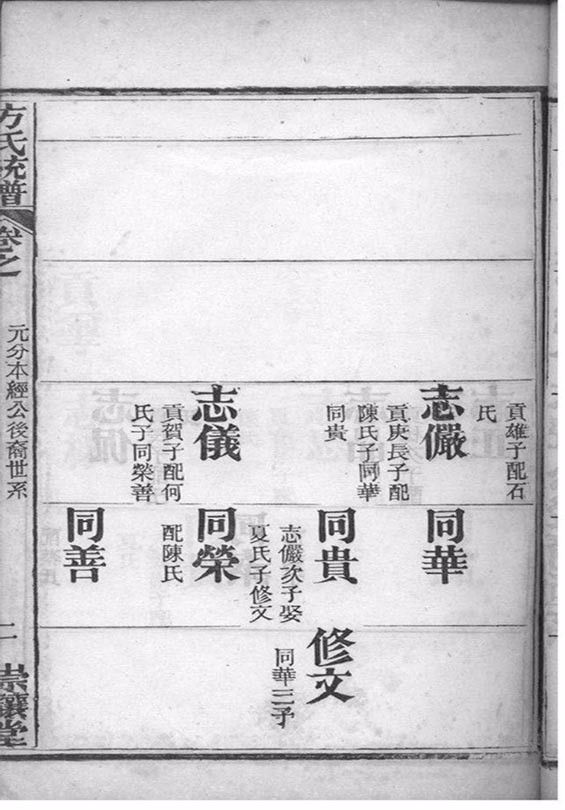 貢雄子配石
氏
志儼
貢庚長子配
陳氏子同華
同貴
志儀
貢賀子配何
氏子同榮善
同華
同貴
志儼次子娶
夏氏子修文
同榮
配陳氏
同善
修文
同華三子
方氏統譜
卷之
元分本經公後裔世系
崇讓堂